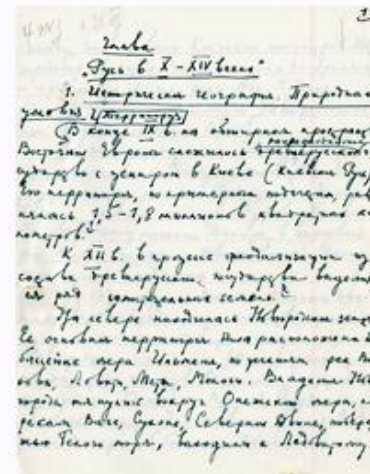 Глава
"Русь в X - XIV веках"
1. Историческая география. Природная
условия. Территория
В конце IX в. на обширном простран
Восточной Европы сложилось древнерусское
государство с центром в Киеве (Киевская Русь
Его территория, по примерным подсчетам, рав
нялась 1,5-1,8 миллионов квадратных ки
лометров.
К XII в. в процессе феодализации из
состава Древнерусского государства выдели
ся ряд земель.
На севере находилась Новгородская земля
Ее основная территория была расположена в
бассейне озера Ильменя, по течениям рек Во
хова, Ловати, Меты, Мологи. Владения Нов
города тянулись вокруг Онежского озера, по
рекам Ваге, Сухоне, Северной Двине, побере
жью Белого моря, выходили к Ледовитому